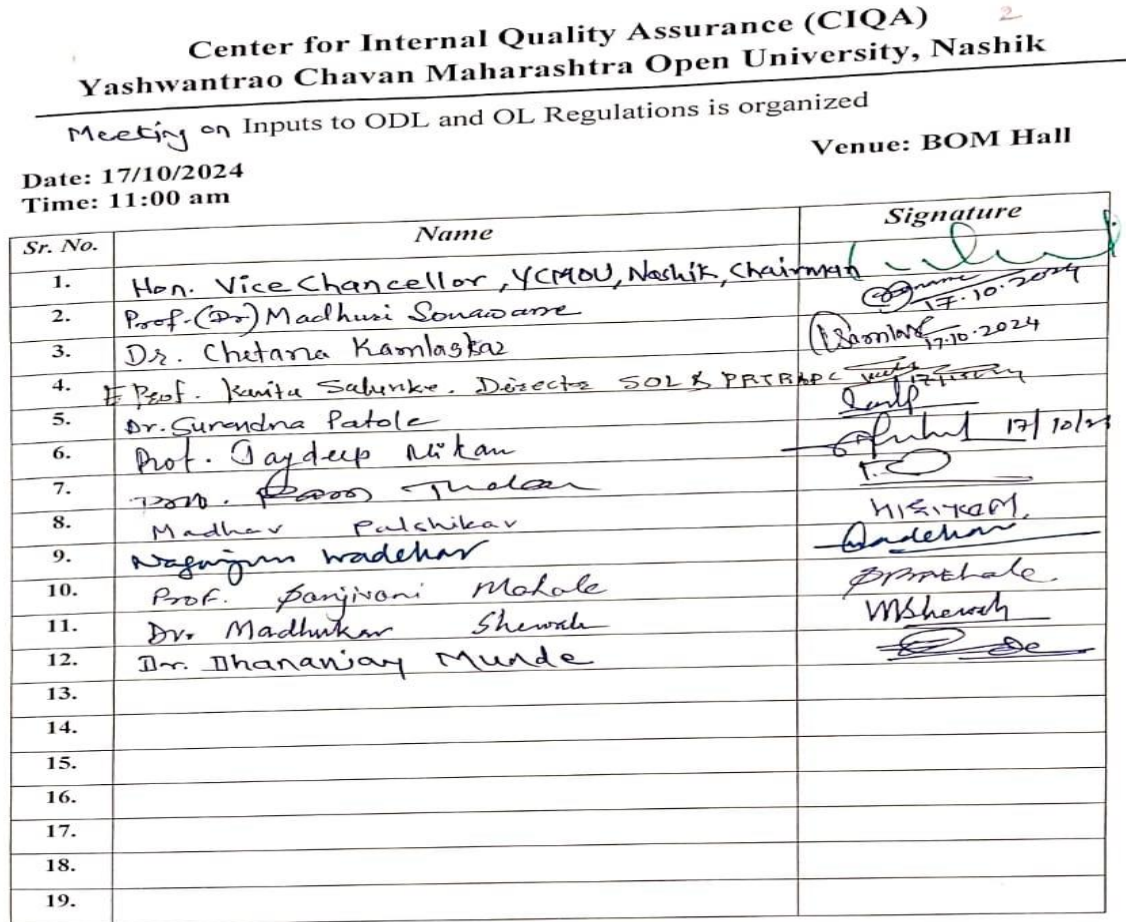 2
Center for Internal Quality Assurance (CIQA)
Yashwantrao Chavan Maharashtra Open University, Nashik
Meeting on Inputs to ODL and OL Regulations is organized
Venue: BOM Hall
Date: 17/10/2024
Time: 11:00 am
Sr. No. Name Signature
1. Hon. Vice Chancellor, YCMOU, Nashik, Chairman
2. Prof. (Dr) Madhuri Sonawane 17.10.2024
3. Dr. Chetana Kamlaskar 17.10.2024
4. Prof. Kavita Salunke. Director SOL &
5. Dr. Surendra Patole
6. Prof. Jaydeep Nikam 17/10/24
7.
8. Madhav Palshikar
9. Nagarjun Wadekar Wadekar
10. Prof. Sanjivani Mahale
11. Dr. Madhukar Shewale MShewale
12. Dr. Dhananjay Munde
13.
14.
15.
16.
17.
18.
19.